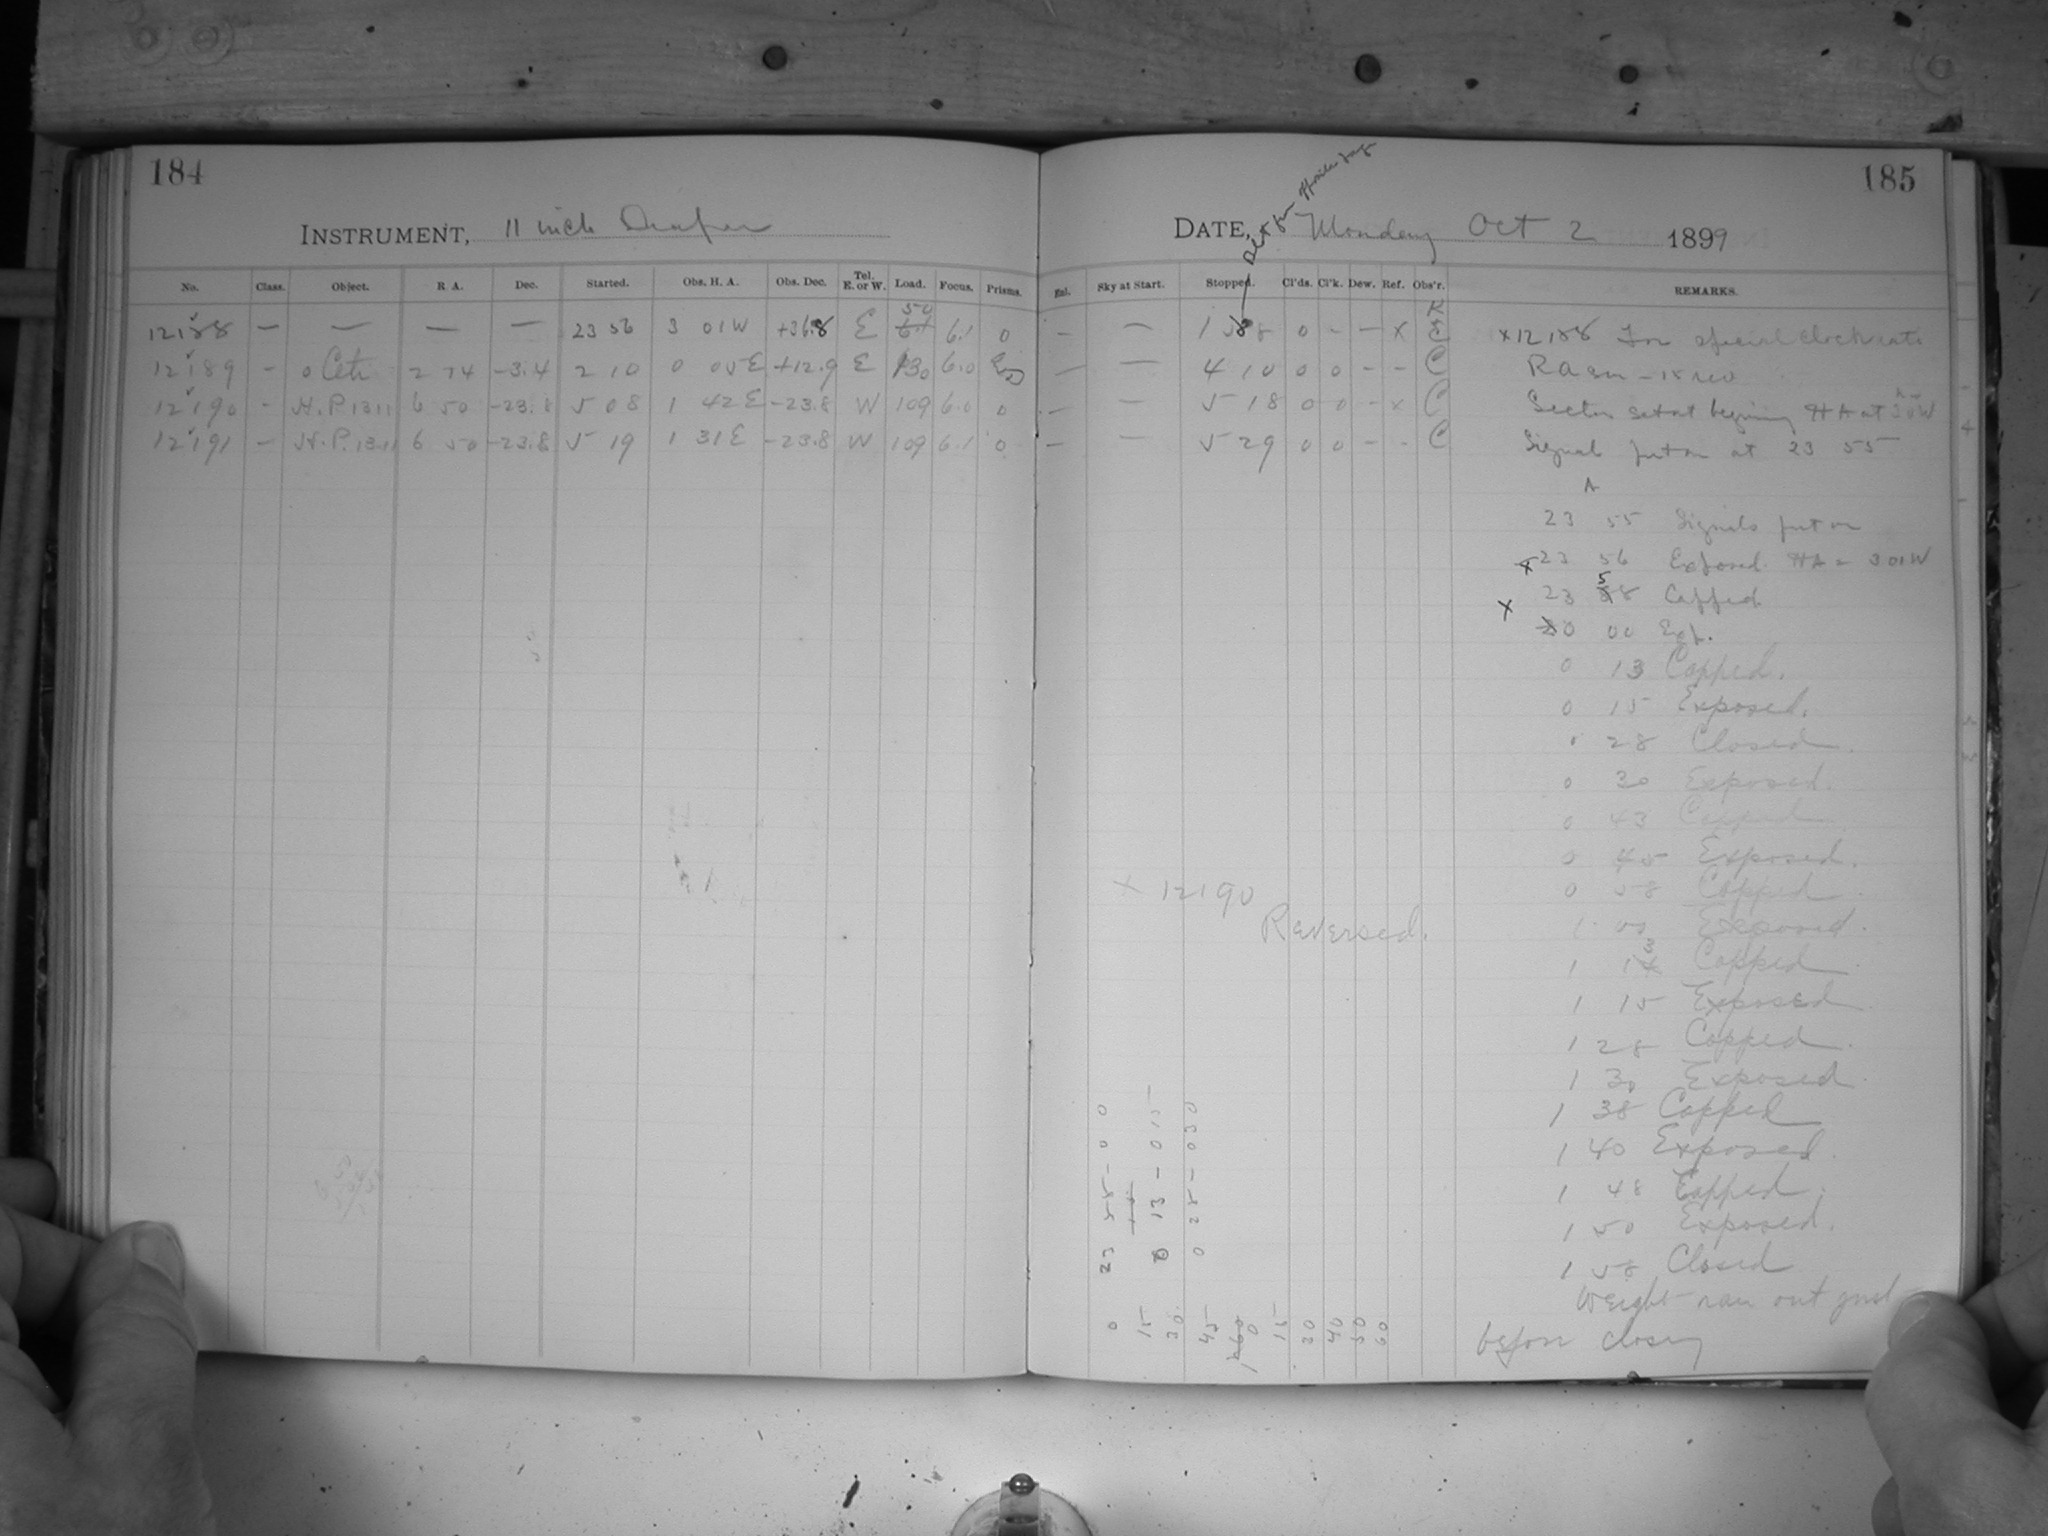 184
INSTRUMENT, 11 inch Draper
No. Class. Object. R A. Dec. Started. Obs. H. A. Obs. Dec. Tel. E. or W. Load. Focus. Prisms.
12188 — — — — 23 56 3 01W +36.8 E 50 6.1 0
12189 - o Ceti 2 14 -3.4 2 10 0 05E +12.9 E 130 6.0
12190 - H.P. 1311 6 50 -23.8 5 08 1 42E -23.8 W 109 6.0 0
12191 — H.P. 1311 6 50 -23.8 5 19 1 31E -23.8 W 109 6.1 0
185
DATE, Monday Oct 2 1899
Enl. Sky at Start. Stopped. Cl'ds. Cl'k. Dew. Ref. Obs'r. REMARKS.
— — 1 58 0 - - x K x12188 For special clock rate
— — 4 10 0 0 - - C
— — 5 18 0 0 - x C Sector set at begining HA at
— — 5 29 0 0 - - C Signals put on at 23 55
23 55 Signals put on
x 23 56 Exposed HA = 3 01W
x 23 58 Capped
0 00 Exp.
0 13 Capped.
0 15 Exposed.
0 28 Closed.
0 30 Exposed.
0 43 Capped
0 45 Exposed.
0 58 Capped
1 00 Exposed.
1 13 Capped
1 15 Exposed
1 28 Capped
1 30 Exposed
1 38 Capped
1 40 Exposed.
1 48 Capped
1 50 Exposed.
1 58 Closed
Weight ran out just
before closing
x 12190
Reversed.
0 15 30 45 0 15 30 40 50 60